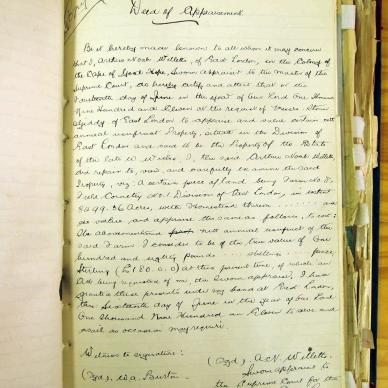 Copy
Deed of Appraisement
Be it hereby made known to all whom it may concern
that I, Arthur Noah Willetts, of East London, in the Colony of
the Cape of Good Hope, Sworn Appraiser to the Master of the
Supreme Court, do hereby certify and attest that on the
Fourteenth day of June in the year of our Lord One Thousand
Nine Hundred and Eleven at the request of Messrs
of East London to appraise and value certain nett
annual usufruct Property, situate in the Division of
East London and said to be the Property of the Estate
of the late W I, the said Arthur Noah Willetts,
did repair to, view, and carefully examine the said
Property, viz: A certain piece of land being Farm No.
Field Cornetcy No. 1 Division of East London, in extent
Acres, with Homestead thereon
do value, and appraise the same as follows, to wit:
The abovementioned nett annual usufruct of the
said Farm I consider to be of the true value of One
hundred and eighty pounds shillings pence
Sterling (£180.0.0) at this present time, of which an
Act being required of me, the Sworn appraiser, I have
granted these presents under my hand at East London,
this Sixteenth day of June in the Year of our Lord
One Thousand Nine Hundred and Eleven to serve and
avail as occasion may require.
Witness to signature:
(Sgd.) A. N. Willetts
Sworn appraiser to
(Sgd.) W.A. Burton
the Supreme Court for the